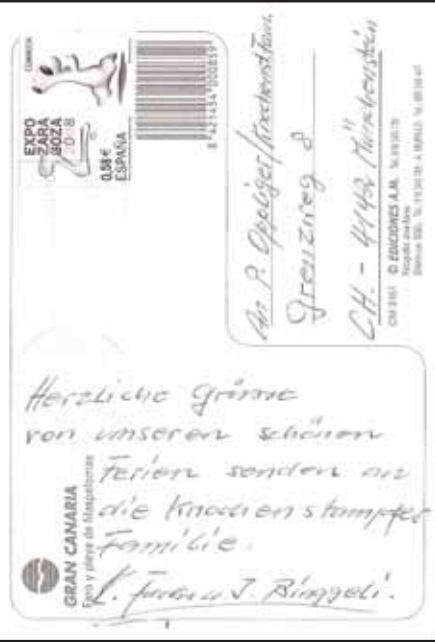 GRAN CANARIA
Faro y playa de Maspalomas
Herzliche Grüsse
von unseren schönen
Ferien senden an
die Knochenstampfer
Familie.
J. Binggeli.
CORREOS
EXPO
ZARA
GOZA
2008
0,58 €
ESPAÑA
8 421454 000859
An P. Oppliger/Knochenst.Fam.
Grenzweg 8
CH. - 4142 Münchenstein
© EDICIONES A.M.